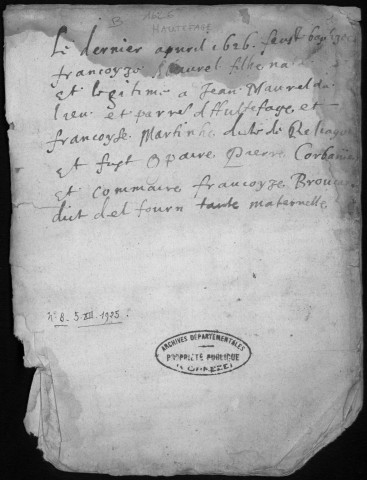 B 1626
HAUTEFAGE
Le dernier apvril 1626 feust bap
francoyze Maurel filhe na
et legitime a Jean Maurel du
lieu et parresse d'Aultefage et
francoyse Martinhe
et fust Compaire Pierre Corbania
et Commaire francoyze Brou
dict del fourn tante maternelle
N° 8 - 5 XII 1905.
ARCHIVES DÉPARTEMENTALES
PROPRIÉTÉ PUBLIQUE
CORRÈZE